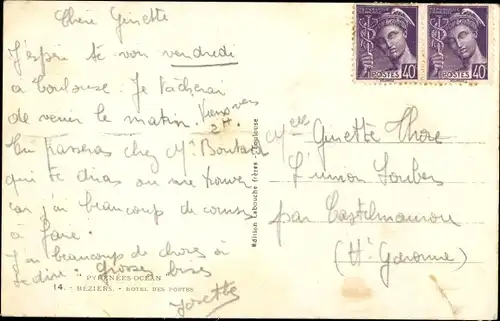 Chère Ginette
J'espère te voir vendredi
à Toulouse. Je tâcherai
de venir le matin. Viens vers
2H.
Tu passeras chez Mr Boutard
qui te dira où me trouver
car j'ai beaucoup de courses
à faire.
J'ai beaucoup de choses à
te dire. Grosses bises
Josette
"PYRÉNÉES-OCÉAN"
14. - BÉZIERS. - HOTEL DES POSTES
Edition Labouche frères - Toulouse
POSTES 40c
POSTES 40c
Melle Ginette
L'union
par Castelmaurou
(Hte Garonne)